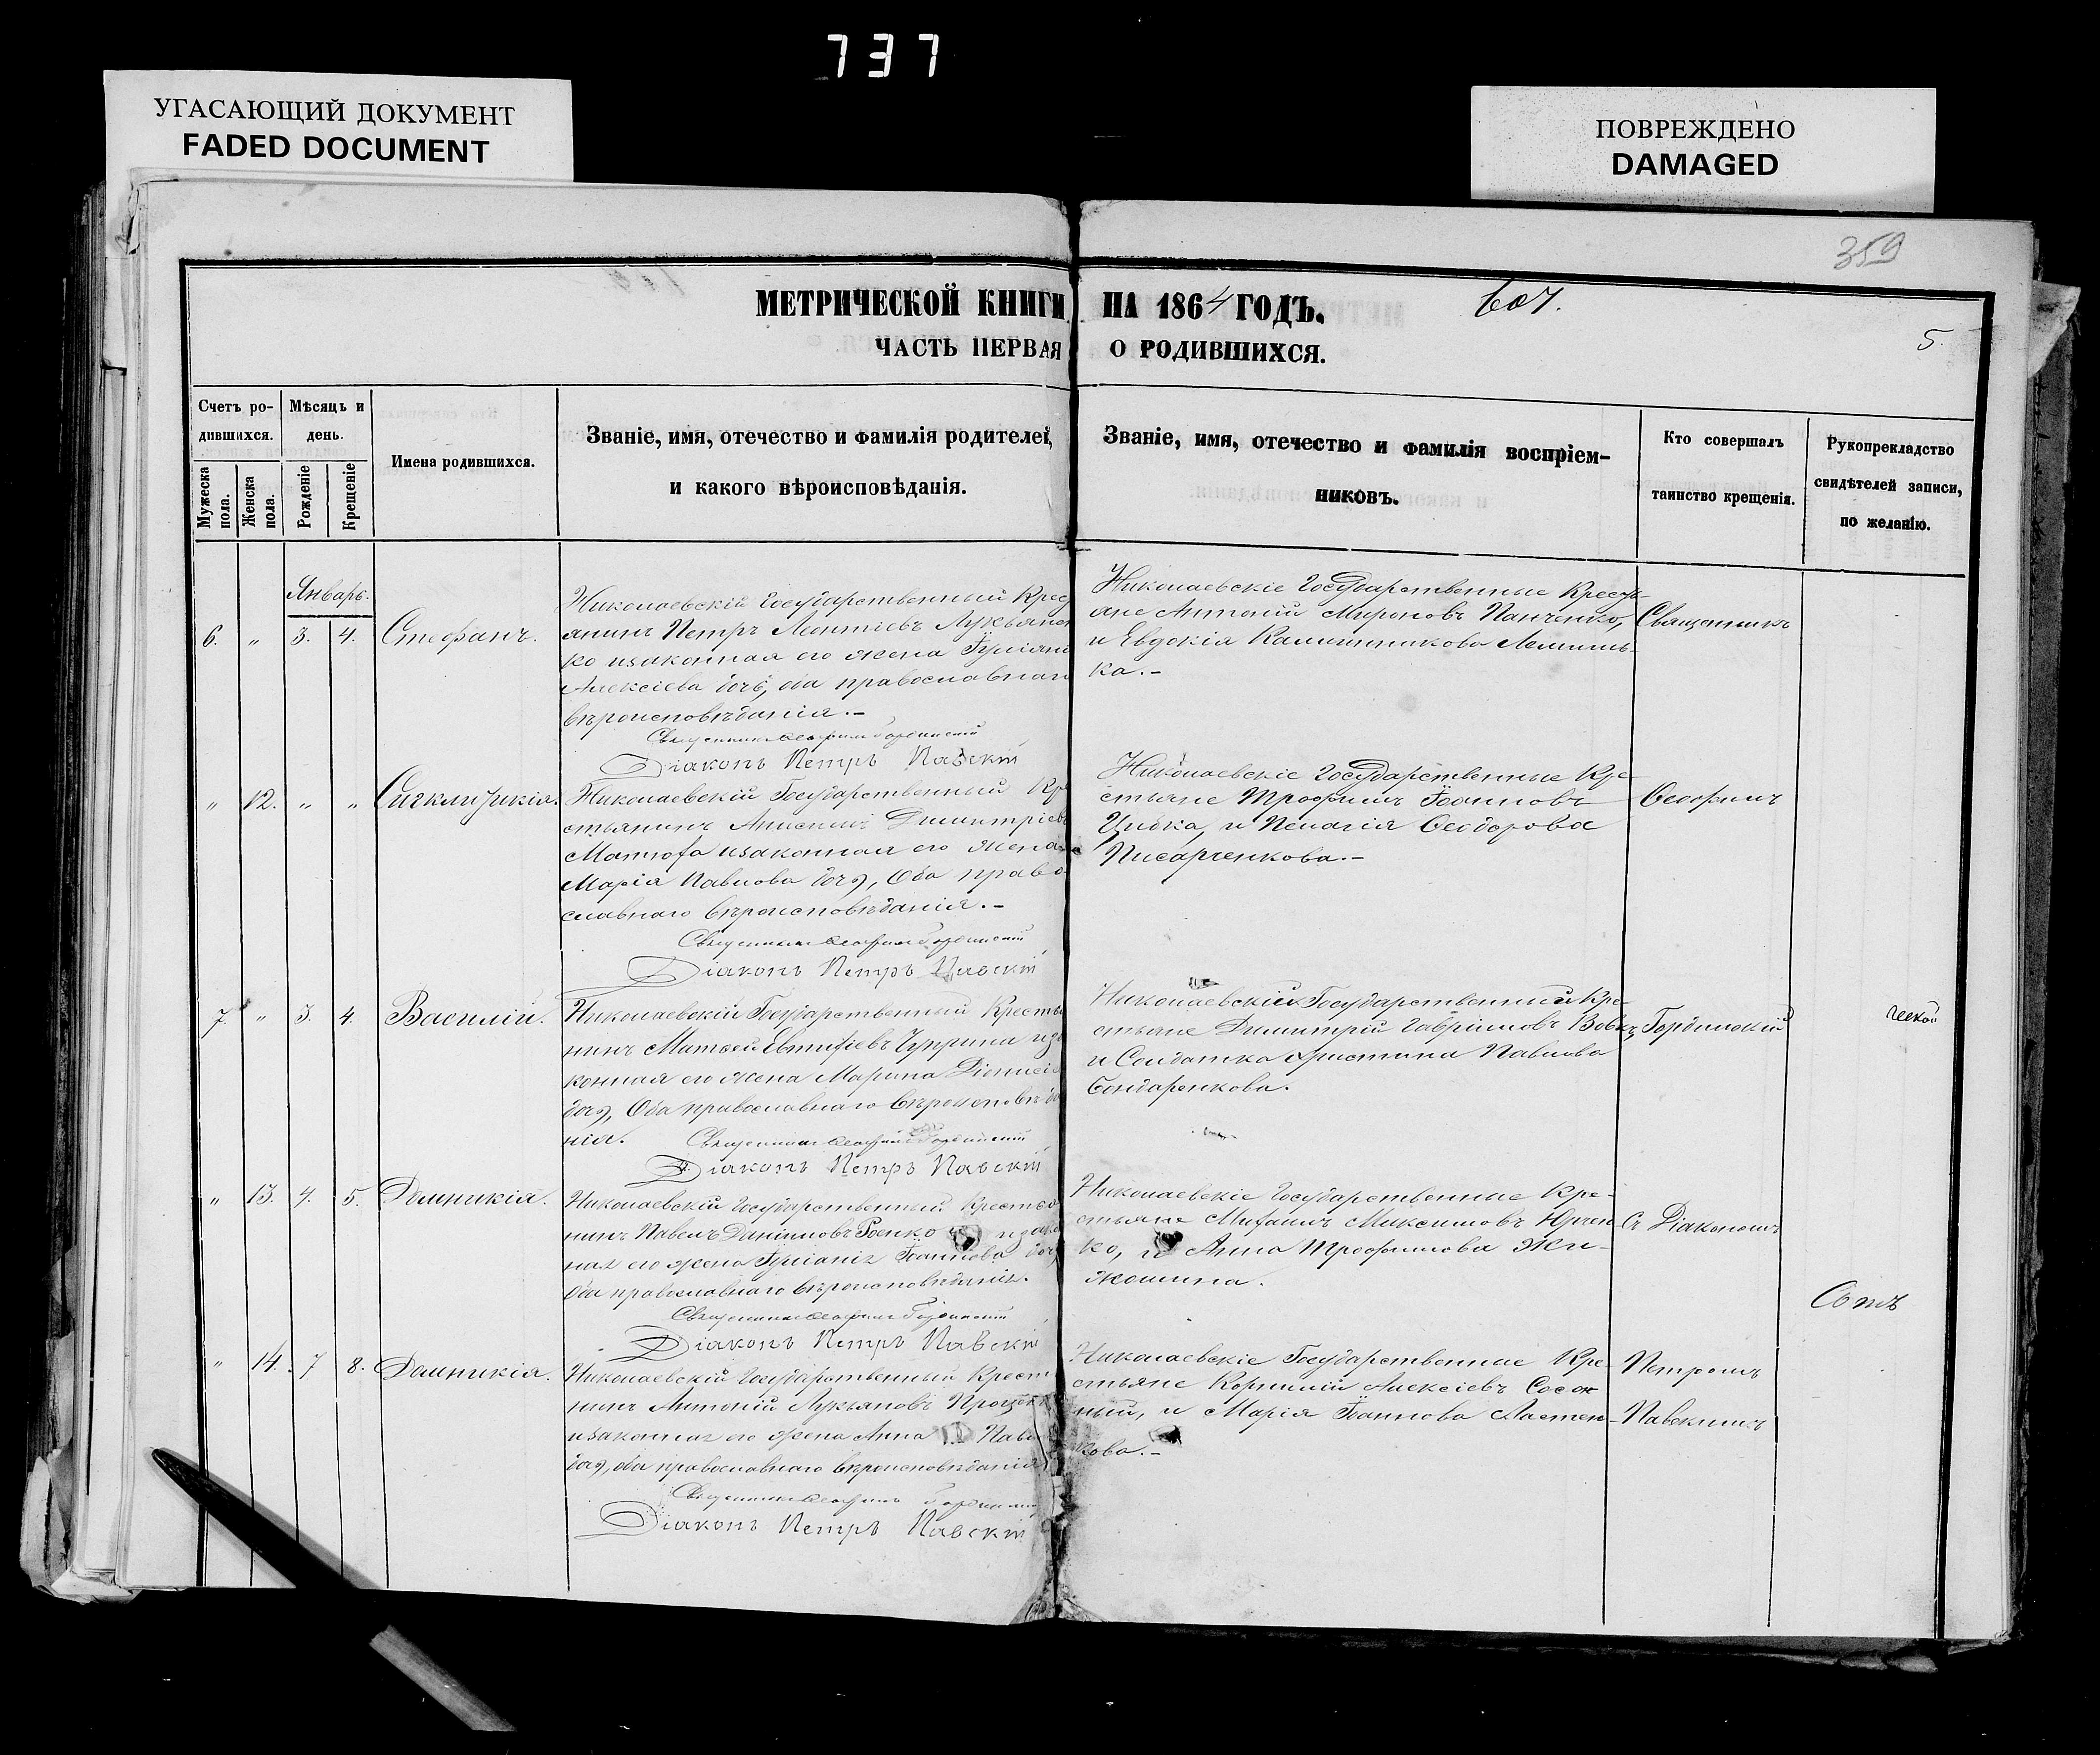 737
УГАСАЮЩИЙ ДОКУМЕНТ
FADED DOCUMENT
ПОВРЕЖДЕНО
DAMAGED
359
МЕТРИЧЕСКОЙ КНИГИ НА 1864 ГОДЪ.
607.
ЧАСТЬ ПЕРВАЯ О РОДИВШИХСЯ.
5.
Счетъ ро-
дившихся.
Мужеска пола.
Женска пола.
Мѣсяцъ и
день.
Рожденіе
Крещеніе
Имена родившихся.
Званіе, имя, отечество и фамилія родителей,
и какого вѣроисповѣданія.
Званіе, имя, отечество и фамилія воспріем-
никовъ.
Кто совершалъ
таинство крещенія.
Рукоприкладство
свидѣтелей записи,
по желанію.
Январь.
6. " 3. 4. Стефанъ.
Николаевскій Государственный Крест
янинъ Петръ Леонтіевъ Лукьянен
ко изаконная его жена Іуліані
Алексіева дочь, оба православнаго
вѣроисповѣданія.-
Священникъ Ѳеофилъ Гординскій
Діаконъ Петръ Павскій
Николаевскіе Государственные Крестья-
ане Антоній Мироновъ Панченко,
и Евдокія Калинникова
ка.-
Священникъ
" 12. " " Сигклитикія.
Николаевскій Государственный Кре
стьянинъ Анисимъ Димитріевъ
изаконная его жена
Марія Павлова дочь, Оба право
славнаго вѣроисповѣданія.-
Священникъ Ѳеофилъ Гординскій
Діаконъ Петръ Павскій
Николаевскіе Государственные Кре-
стьяне Трофимъ Іоанновъ
Цибка, и Пелагія Ѳеодорова
Писарченкова.-
Ѳеофилъ
7. " 3. 4. Василій.
Николаевскій Государственный Крестья
нинъ Матѳей Евтихіевъ Чуприна иза
конная его жена Марина Діонисі
дочь, Оба православнаго вѣроисповѣда
нія.
Священникъ Ѳеофилъ Гординскій
Діаконъ Петръ Павскій
Николаевскій Государственный Кре-
стьяне Димитрій Гавріиловъ Вовкъ
и Солдатка Христина Павлова
Бондаренкова.
Гординскій
" 13. 4. 5. Домникія.
Николаевскій Государственный Крестья
нинъ Павелъ Даніиловъ изакон
ная его жена Іуліанія Іоаннова дочь
Оба православнаго вѣроисповѣданія.
Священникъ Ѳеофилъ Гординскій
Діаконъ Петръ Павскій
Николаевскіе Государственные Кре-
стьяне Михаилъ Максимовъ Юрчен
ко, и Анна Трофимова

Съ Діакономъ
" 14. 7 8. Домникія.
Николаевскій Государственный Крестья
нинъ Антоній Лукьяновъ
изаконная его жена Анна Павл
дочь, оба православнаго вѣроисповѣданія
Священникъ Ѳеофилъ Гординскій
Діаконъ Петръ Павскій
Николаевскіе Государственные Кре-
стьяне Корнилій Алексіевъ
ный, и Марія Іоаннова
кова.-
Петромъ
Павскимъ